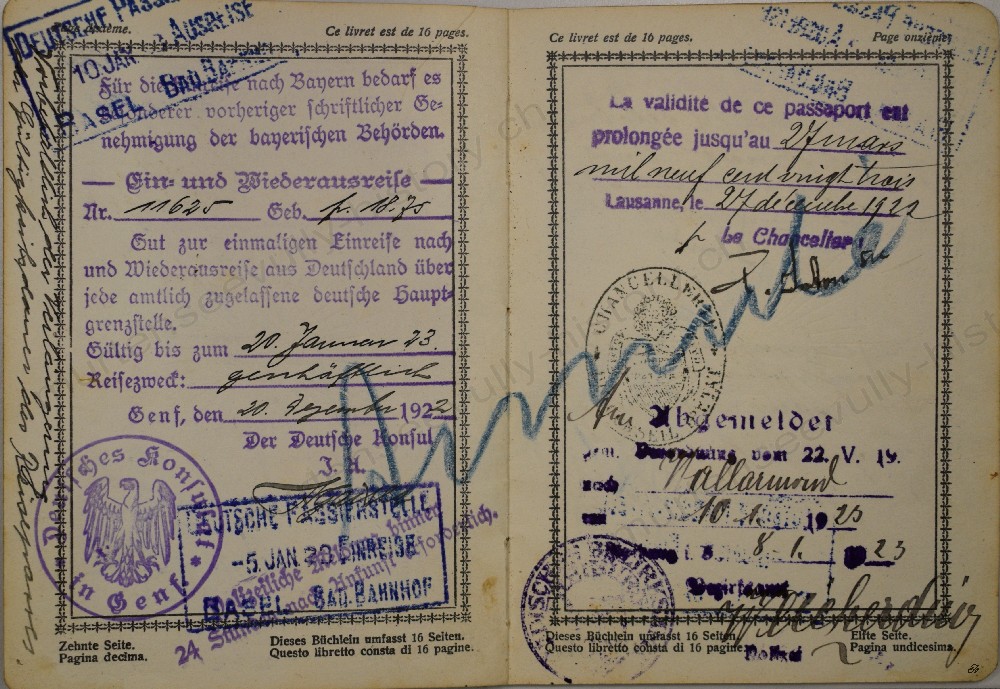 Page dixième.
Ce livret est de 16 pages.
DEUTSCHE PASSIERSTELLE
10 JAN AUSREISE
BASEL BAD. BAHNHOF
Für die Einreise nach Bayern bedarf es
besonderer vorheriger schriftlicher Ge-
nehmigung der bayerischen Behörden.
Ein- und Wiederausreise
Nr. 11625 Geb. fr. 18.75
Gut zur einmaligen Einreise nach
und Wiederausreise aus Deutschland über
jede amtlich zugelassene deutsche Haupt-
grenzstelle.
Gültig bis zum 20. Januar 23.
Reisezweck: geschäftlich
Genf, den 20. Dezember 1922
Der Deutsche Konsul
I. A.
Deutsches Konsulat
in Genf
DEUTSCHE PASSIERSTELLE
-5. JAN 23 EINREISE
BASEL BAD. BAHNHOF
Polizeiliche Meldung binnen
24 Stunden nach Ankunft erforderlich.
vorbehaltlich der Verlängerung
der Gültigkeitsdauer des Reisepasses.
Zehnte Seite.
Pagina decima.
Dieses Büchlein umfasst 16 Seiten.
Questo libretto consta di 16 pagine.
Ce livret est de 16 pages.
Page onzième
La validité de ce passeport est
prolongée jusqu'au 27 mars
mil neuf cent vingt trois
Lausanne, le 27 décembre 1922
p. Le Chancelier:
CHANCELLERIE
Annulé
Abgemeldet
gem. Verordnung vom 22. V. 19.
nach Vallamand
am 10. 1. 1923
8. 1. 1923
Polizei
Dieses Büchlein umfasst 16 Seiten.
Questo libretto consta di 16 pagine.
Elfte Seite.
Pagina undicesima.